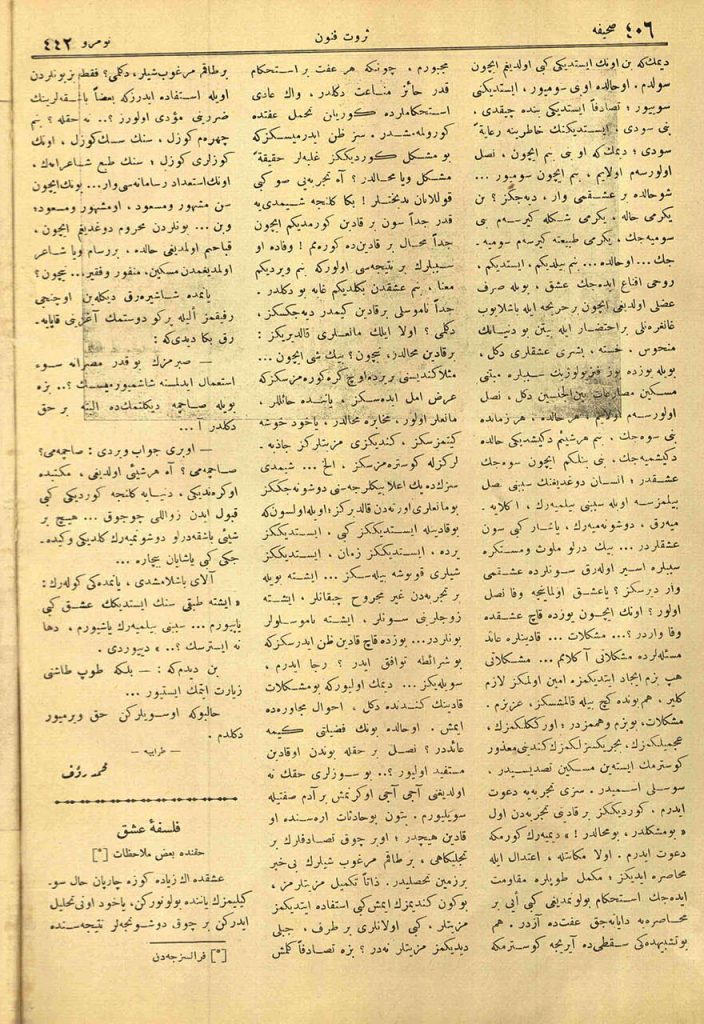 ٤٠٦ صحیفه
ثروت فنون
نومرو ٤٤٢
دیمك كه بن اونك ایستدیكی كبی اولدیغم ایچون
سولدم ، اوحالده اونی سومیور ، ایستدیكنی
سویور ؛ تصادفاً ایستدیكی بنده چیقدی .
بنی سودی ، ایستدیكنك خاطرینه رعایةً
سودی ؛ دیمك كه او بنی بنم ایچون ، نصل
اولورسه‌م اولایم ، بنم ایچون سومیور ...
شو حالده بر عشقمی وار ، دیه‌جكز ؟ بن
یكرمی حاله ، یكرمی شكله كیرسه‌م بنی
سومیه‌جك ، یكرمی طبیعته كیرسه‌م سومیه‌
جك ... اوحالده ... بنم بیلدیكم ، ایستدیكم ،
روحی اقناع ایده‌جك عشق ، بویله صرف
عضلی اولدیغی ایچون بر حریجه ایله باشلایوب
غانغره‌نلی بر احتضار ایله بیتن بو دنیانك
منحوس ، خسته ، بشری عشقلری دكل ،
اولورسه‌م اولایم ، هر حالده ، هر زمانده
بنی سوه‌جك ، بنم هرشیئم دكیشدیكی حالده
دكیشمیه‌جك ، بنی بنلكم ایچون سوه‌جك
عشقدر ؛ انسان دوغدیغنك سببنی نصل
بیلمزسه اویله سببنی بیلمیه‌رك ، آكلایه‌
میه‌رق ، دوشونمیه‌رك ، یاشار كبی سون
عشقلردر ... بیك درلو ملوث ومستكره
سببلره اسیر اوله‌رق سونلرده عشقمی
وار دیرسكز ؟ یا عشق اولماینجه وفا نصل
اولور ؟ اونك ایچون یوزده قاچ عشقده
وفا واردر ؟ ... مشكلات ... قادینلره عائد
مسئله‌لرده مشكلاتی آكلام ... مشكلاتی
هپ بزم ایجاد ایتدیكمزه امین اولمكز لازم
كلیر ، هم بونده كچ بیله قالمشسكز ، عزیزم .
مشكلات، بو بزم وهممزدر ؛ اورككلكمزك،
عجمیلكمزك، تجربه‌سزلكمزك كندینی معذور
كوسترمك ایسته‌ین مسكین تصدیسیدر ،
سوسلی اسمیدر . سزی تجربه‌یه دعوت
ایدرم . كوردیككز بر قادینی تجربه‌دن اول
« بو مشكلدر ، بو محالدر ! » دیمیه‌رك كورمكه
دعوت ایدرم . اولا مكاسله ، اعتدال ایله
محاصره ایدیكز ؛ مكمل طوپلره مقاومت
ایده‌جك استحكام بولونمدیغی كبی آیی بر
محاصره‌یه دایانه‌جق عفت ده آزدر . هم
بو تشبیه‌ده كی سقطی‌ده آیریجه كوسترمكه
مجبورم ، چونكه هر عفت بر استحكام
قدر حائز مناعت دكلدر ، واك عادی
استحكاملرده كوریلان تحمل عفتده
كورولمه‌مشدر . سز ظن ایدرمیسكزكه
بو مشكل كوردیككز غلبه‌لر حقیقةً
مشكل ویا محالدر ؟ آه تجربه‌یی سو كبی
قوللانان بدبختلر ! بكا كلنجه شیمدی‌یه
قدر جداً سون بر قادین كورمدیكم ایچون
جداً محال بر قادین‌ده كوره‌م ! وفاده او
سببلرك بر نتیجه‌سی اولورکه بنم ویردیكم
معنا ، بنم عشقدن بكلدیكم غایه بو دكلدر .
جداً ناموسلی بر قادین كیمدر دیه‌جكسكز ،
دكلمی ؟ اولا ایلك مانعلری قالدیریكز :
بر قادین محالدر، نیچون؟ بیك شی ایچون ...
مثلا كندیسنی بر یرده اوچ كره كوره‌مزسكزكه
عرض امل ایده‌سكز ، یاننده حائللر ،
مانعلر اولور ، مخابره محالدر ، یاخود خوشه
كیتمزسكز ، كندیكزی مزیتلركز جاذبه‌
لركزله كوستره‌مزسكز ، الخ ... شیمدی
سزك ده بك اعلا بیكلرجه‌سنی دوشونه‌جككز
بو مانعلری اورته‌دن قالدیركز ؛ اویله اولسون كه
بو قادینله ایستدیككز كبی ، ایستدیككز
یرده ، ایستدیككز زمان ، ایستدیككز
شیلری قونوشه بیله‌سكز ... ایشته بویله
بر تجربه‌دن غیر مجروح چیقانلر ، ایشته
زوجلرینی سونلر ، ایشته ناموسلولر
بونلردر ... یوزده قاچ قادین ظن ایدرسكزكه
بو شرائطه توافق ایدر ؟ رجا ایدرم ،
سویله‌یكز ... دیمك اولیورکه بو مشكلات
قادینك كندنده دكل ، احوال مجاوره‌ده
ایمش . اوحالده بونك فضیلتی كیمه
عائددر ؟ نصل بر حقله بوندن او قادین
مستفید اولیور ؟.. بو سوزلری حقك نه
اولدیغنی آجی آجی اوكرنمش بر آدم صفتیله
سویلیورم . بتون بو حادثات اره‌سنده او
قادین هیچدر ؛ او بر چوق تصادفلرك بر
تجلیكاهی ، بر طاقم مرغوب شیلرك بی‌خبر
بر زمین تحصلیدر . ذاتاً تكمیل مزیتلرمز ،
بوكون كندیمزك ایمش كبی استفاده ایتدیكمز
مزیتلر ، كبی اولانلری بر طرف ، جبلی
دیدیكمز مزیتلر نه‌در ؟ بزه تصادفاً كلمش
بر طاقم مرغوب شیلر ، دكلمی ؟ فقط بز بونلردن
اویله استفاده ایدرزكه بعضاً باشقه‌لرینك
ضررینی مؤدی اولورز ؟.. نه حقله ؟ بنم
چهره‌م كوزل ، سنك سسك كوزل ، اونك
كوزلری كوزل ؛ سنك طبع شاعرانه‌ك ،
اونك استعداد رسامانه‌سی وار... بونك ایچون
سن مشهور ومسعود ، او مشهور ومسعود؛
وبن ... بونلردن محروم دوغدیغم ایچون ،
قباحتم اولمدیغی حالده ، بر رسام ویا شاعر
اولمدیغمدن مسكین، منفور وفقیر ... نیچون؟
یانمده شاشیره‌رق دیكله‌ین اوچنجی
رفیقمز ألیله پركو دوستمك آغزینی قاپایه‌
رق بكا دیدی كه :
— صبرمزك بو قدر مصرانه سوء
استعمال ایدلمسنه شاشمیورمیسك ؟.. بزه
بویله صاچمه دیكلتمك‌ده البته بر حق
دكلدر آ ...
— اوبری جواب ویردی : صاچمه‌می؟
صاچمه‌می ؟ آه هر شیئی اولدیغی ، مكتبده
اوكرندیكی ، دنیایه كلنجه كوردیكی كبی
قبول ایدن زواللی چوجوق ... هیچ بر
شیئی باشقه درلو دوشونمیه‌رك كلدیكی وكیده‌
جكی كبی یاشایان بیچاره ...
آلای باشلامشدی ، یانمده‌كی كوله‌رك :
« ایشته طبقی سنك ایستدیكك عشق كبی
یاپیورم ... سببنی بیلمیه‌رك یاشیورم ، دها
نه ایترسك ؟.. » دییوردی .
بن دیدم كه : — بلكه طوپ طاشنی
زیارت ایتمك ایستیور ...
حالبوكه او سویلركن حق ویرمیور
دكلدم .
— طرابیه —
محمد رؤف
فلسفهٔ عشق
حقنده بعض ملاحظات [*]
عشقده اك زیاده كوزه چارپان حال سو‌
كیلیمزك یاننده بولونوركن ، یاخود اونی تحلیل
ایدركن بر چوق دوشونجه‌لر نتیجه‌سنده
[*] فرانسزجه‌دن